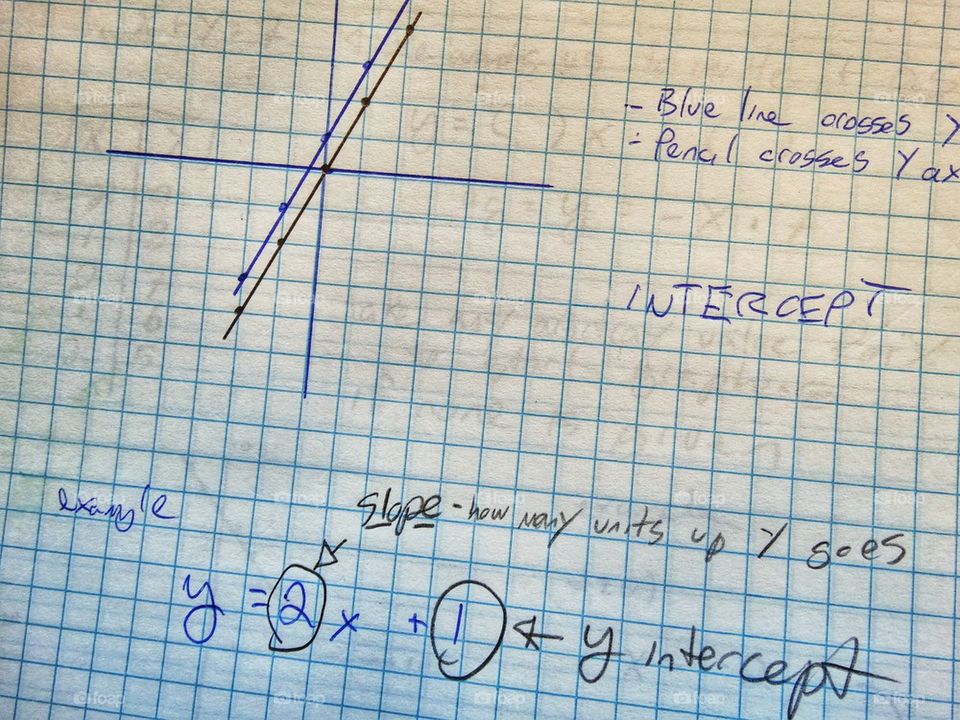 - Blue line crosses Y
- Pencil crosses Y ax
INTERCEPT
example
slope - how many units up Y goes
y = 2x + 1 ← y intercept